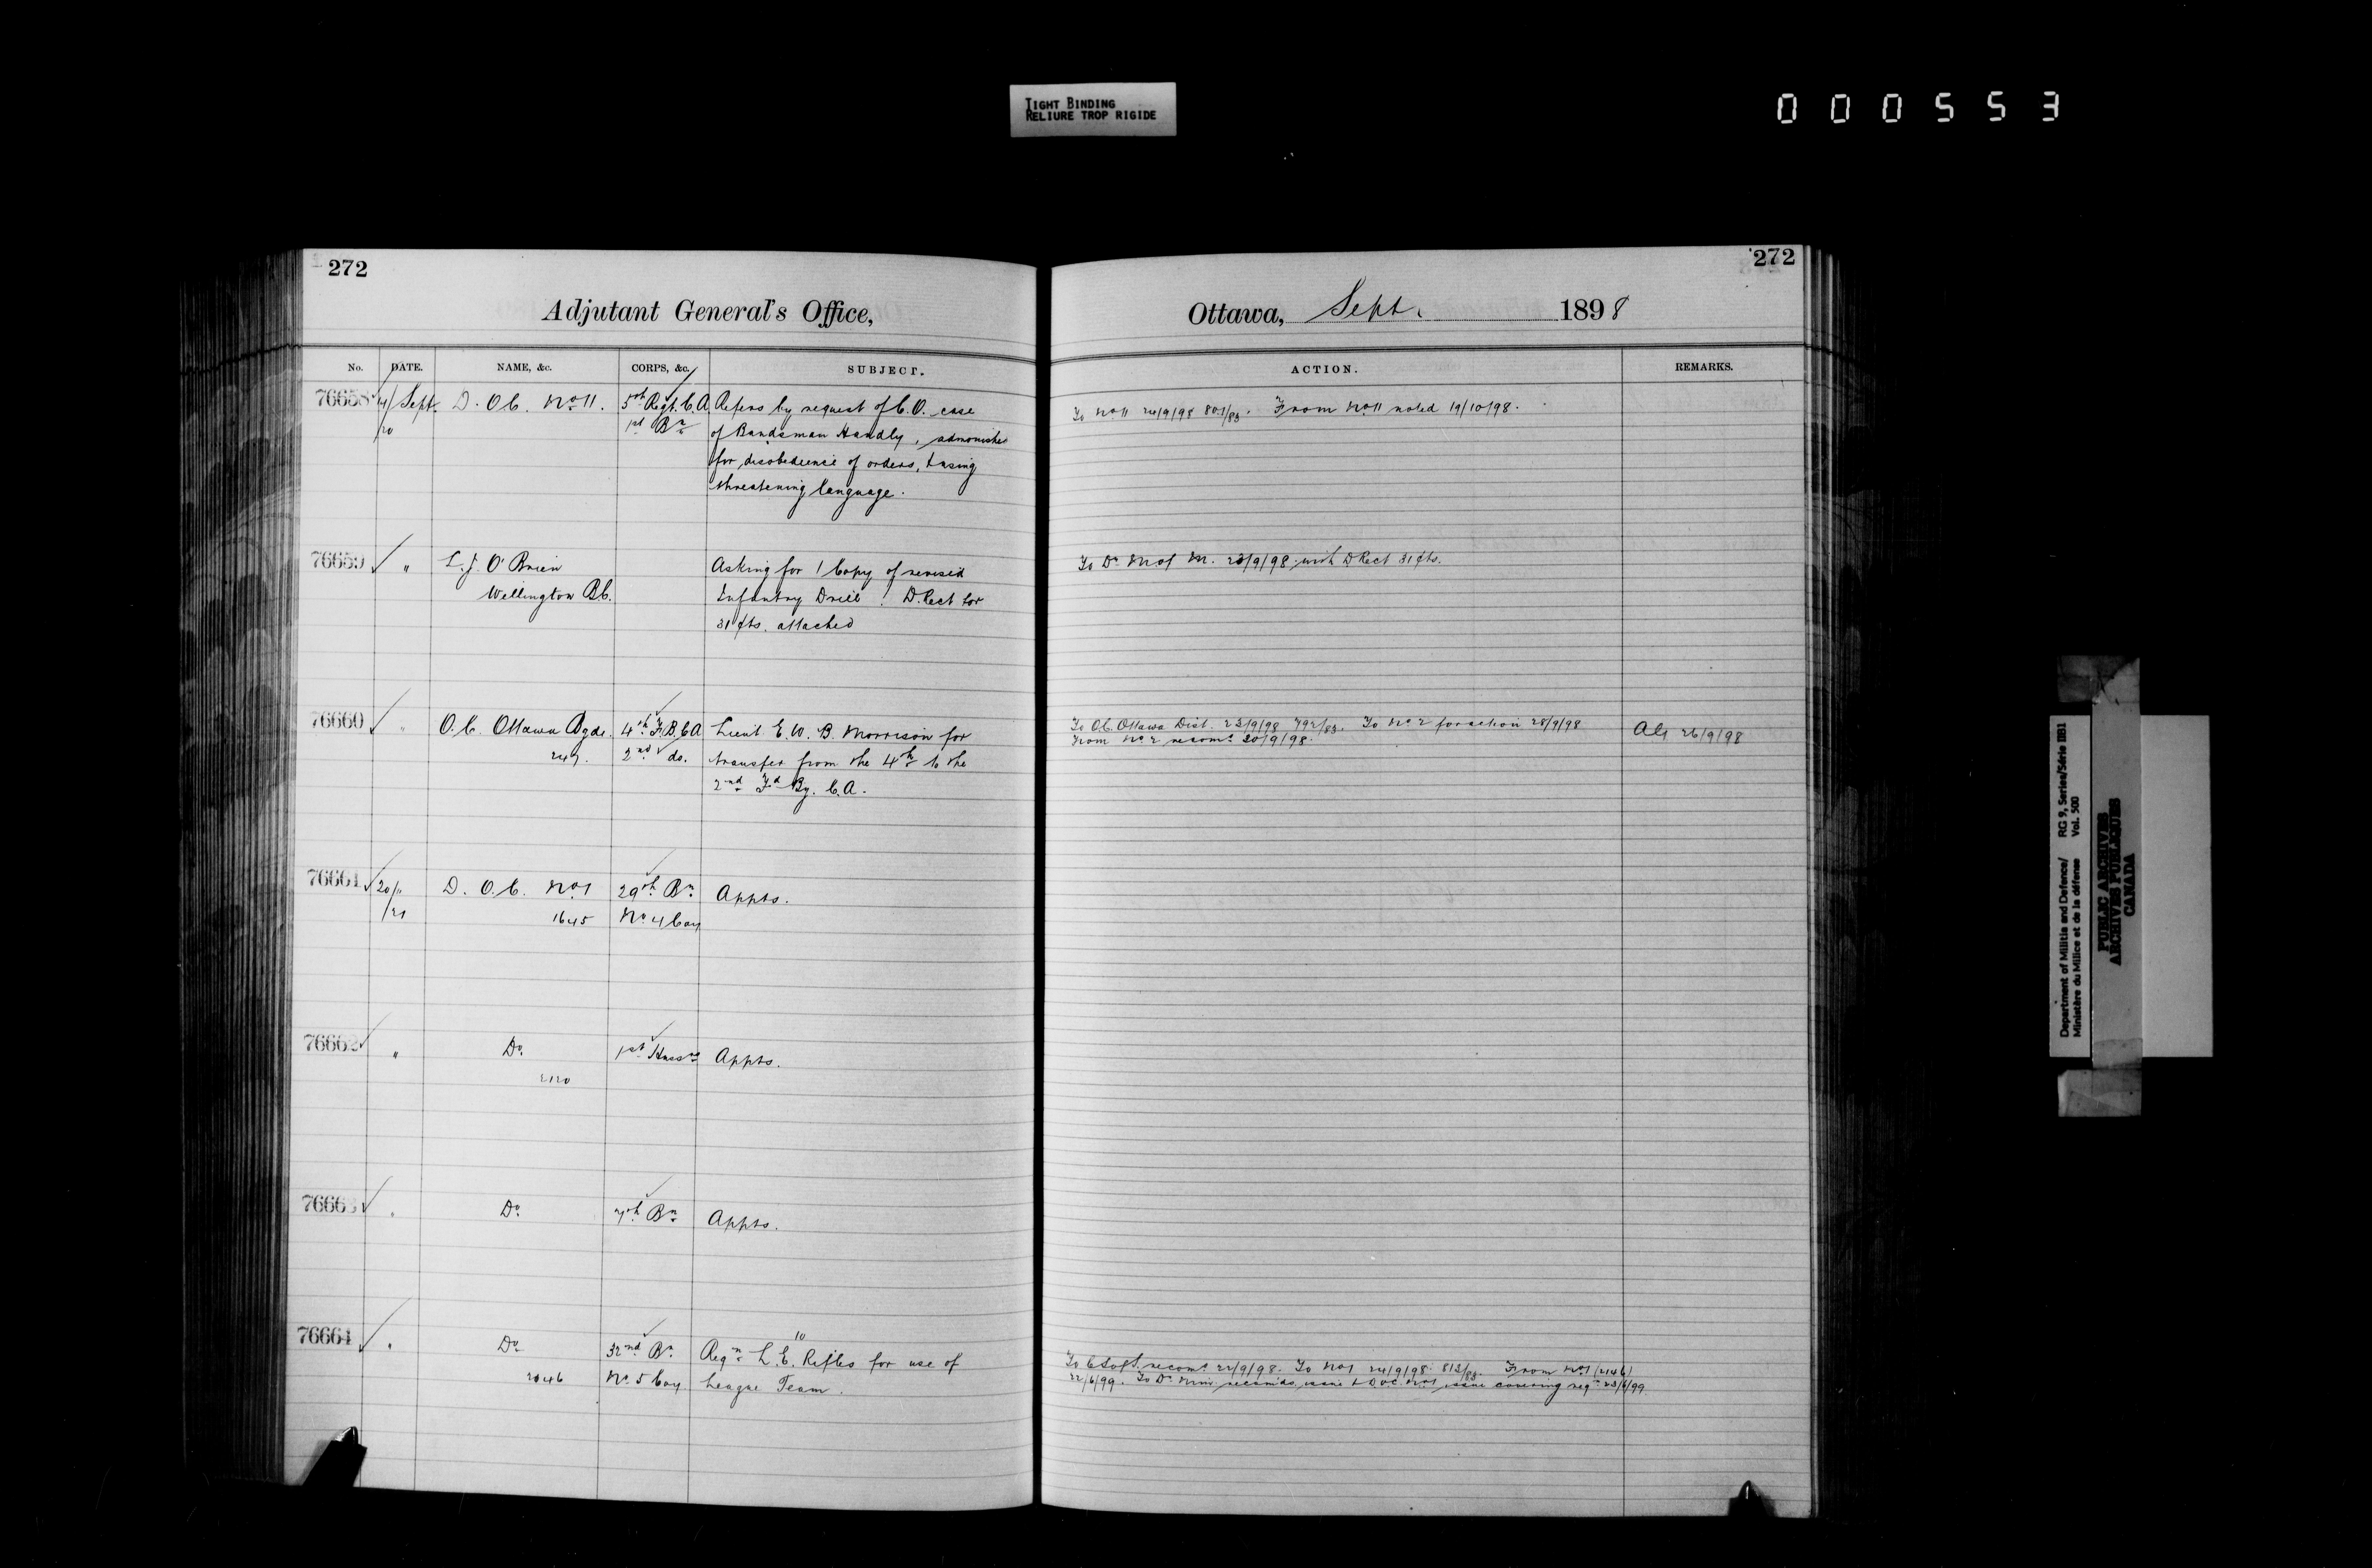 TIGHT BINDING
RELIURE TROP RIGIDE
000553
272
Adjutant General's Office,
No. DATE. NAME, &c. CORPS, &c. SUBJECT.
76658 14/Sept. D. O.C. No 11. 5th Regt. C.A Refers by request of C.O. case
/20 1st Bn of Bandsman Handly, admonished
for disobedience of orders, & using
threatening language.
76659 " L. J. O'Brien Asking for 1 Copy of revised
Wellington B.C. Infantry Drill. D. Rect for
31 cts. attached
76660 " O.C. Ottawa Bgde. 4th F.B.C.A Lieut E. W. B. Morrison for
247. 2nd do. transfer from the 4th to the
2nd Fd By. C.A.
76661 20/" D. O.C. No 1 29th Bn Appts.
/21 1645 No 4 Coy
76662 " Do 1st Hussrs Appts.
2120
76663 " Do 7th Bn Appts.
76664 " Do 32nd Bn Reqn 10 L.E. Rifles for use of
2046 No 5 Coy League Team.
272
Ottawa, Sept. 1898
ACTION. REMARKS.
To No 11 24/9/98 801/83. From No 11 noted 19/10/98.
To D. M of M. 23/9/98 with D Rect 31 cts.
To O.C. Ottawa Dist. 23/9/98 792/83. To No 2 for action 28/9/98
From No 2 recomd 30/9/98. 26/9/98
To C S of S. recomd 22/9/98. To No 1 24/9/98 813/83. From No 1 (2146)
22/6/99. To D. Min. recomds issue & DOC No 1 issue covering reqn 23/6/99.
Department of Militia and Defence/ RG 9, Series/Série IIB1
Ministère du Milice et de la défense Vol. 500
PUBLIC ARCHIVES
ARCHIVES PUBLIQUES
CANADA